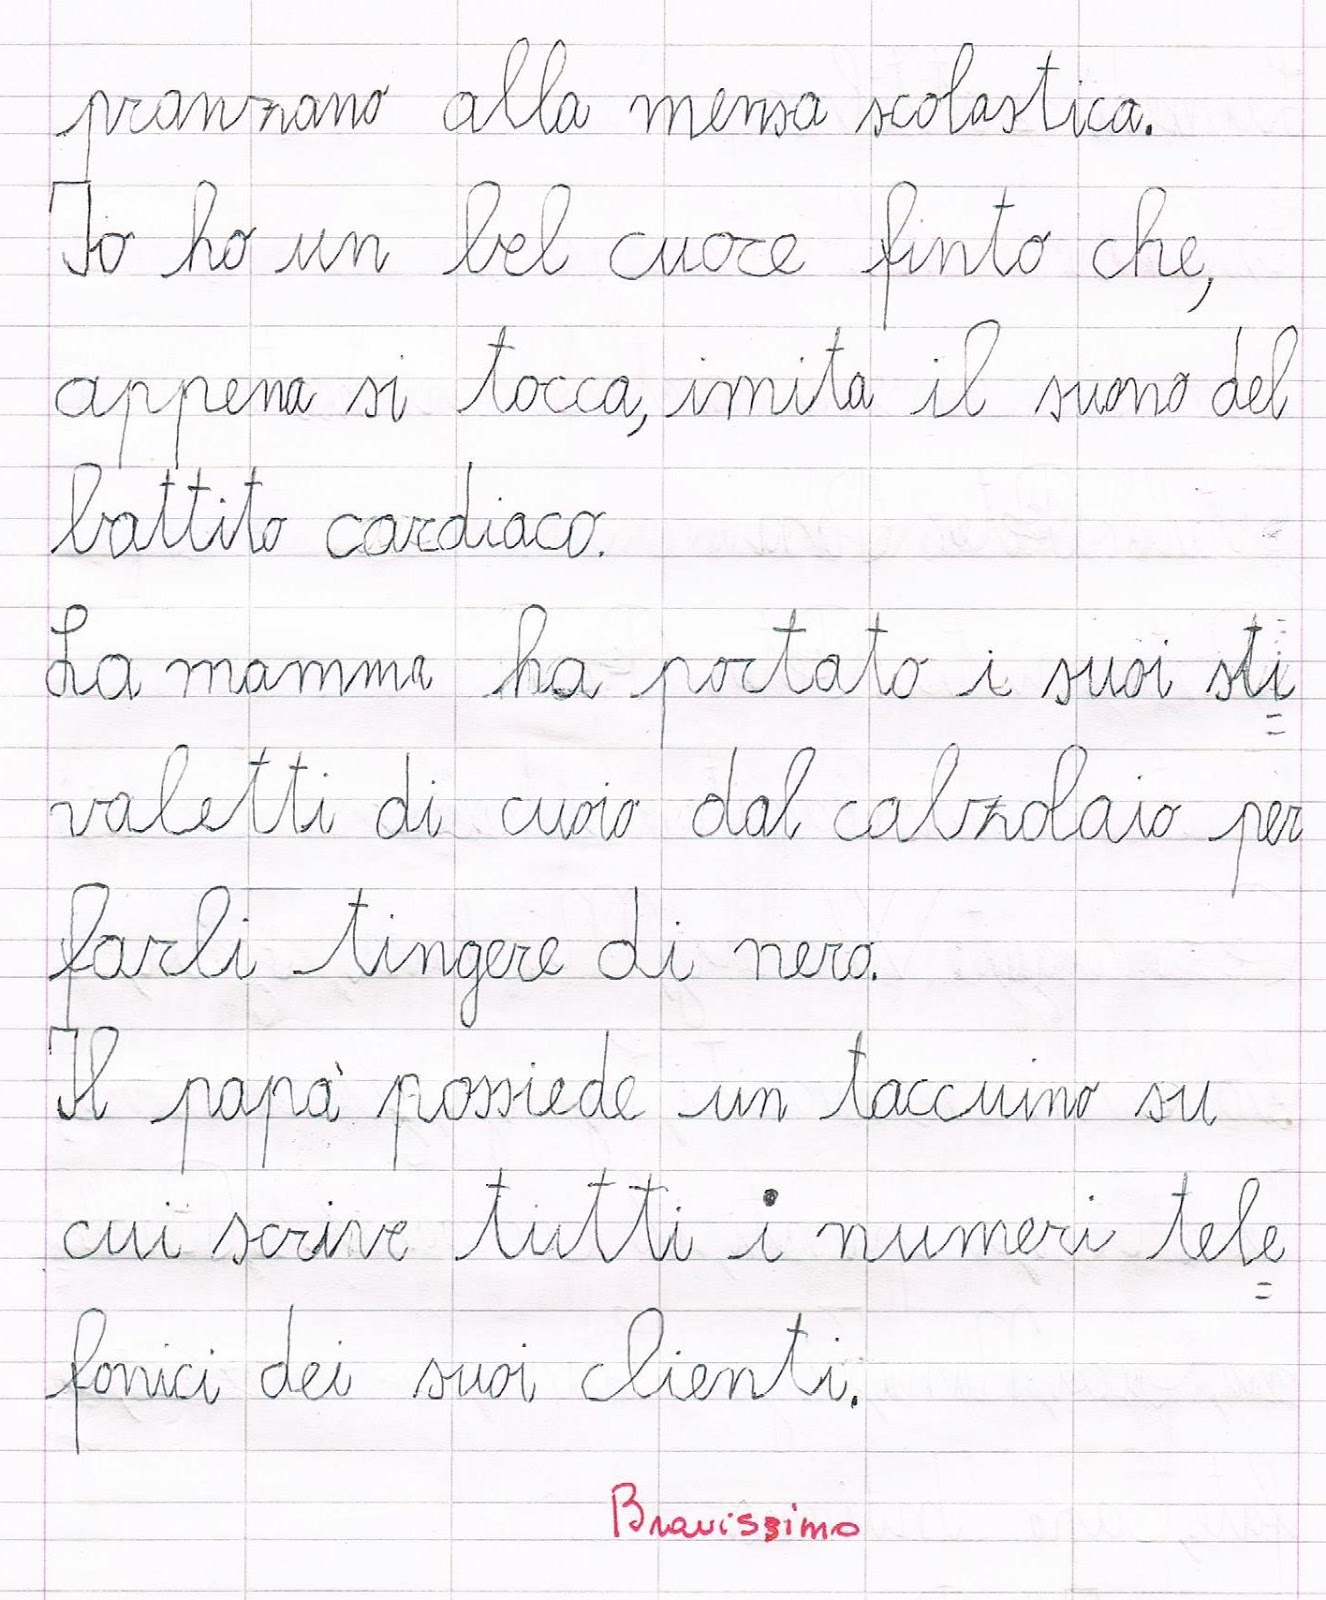 pranzano alla mensa scolastica.
Io ho un bel cuore finto che,
appena si tocca, imita il suono del
battito cardiaco.
La mamma ha portato i suoi sti=
valetti di cuoio dal calzolaio per
farli tingere di nero.
Il papà possiede un taccuino su
cui scrive tutti i numeri tele=
fonici dei suoi clienti.
Bravissimo